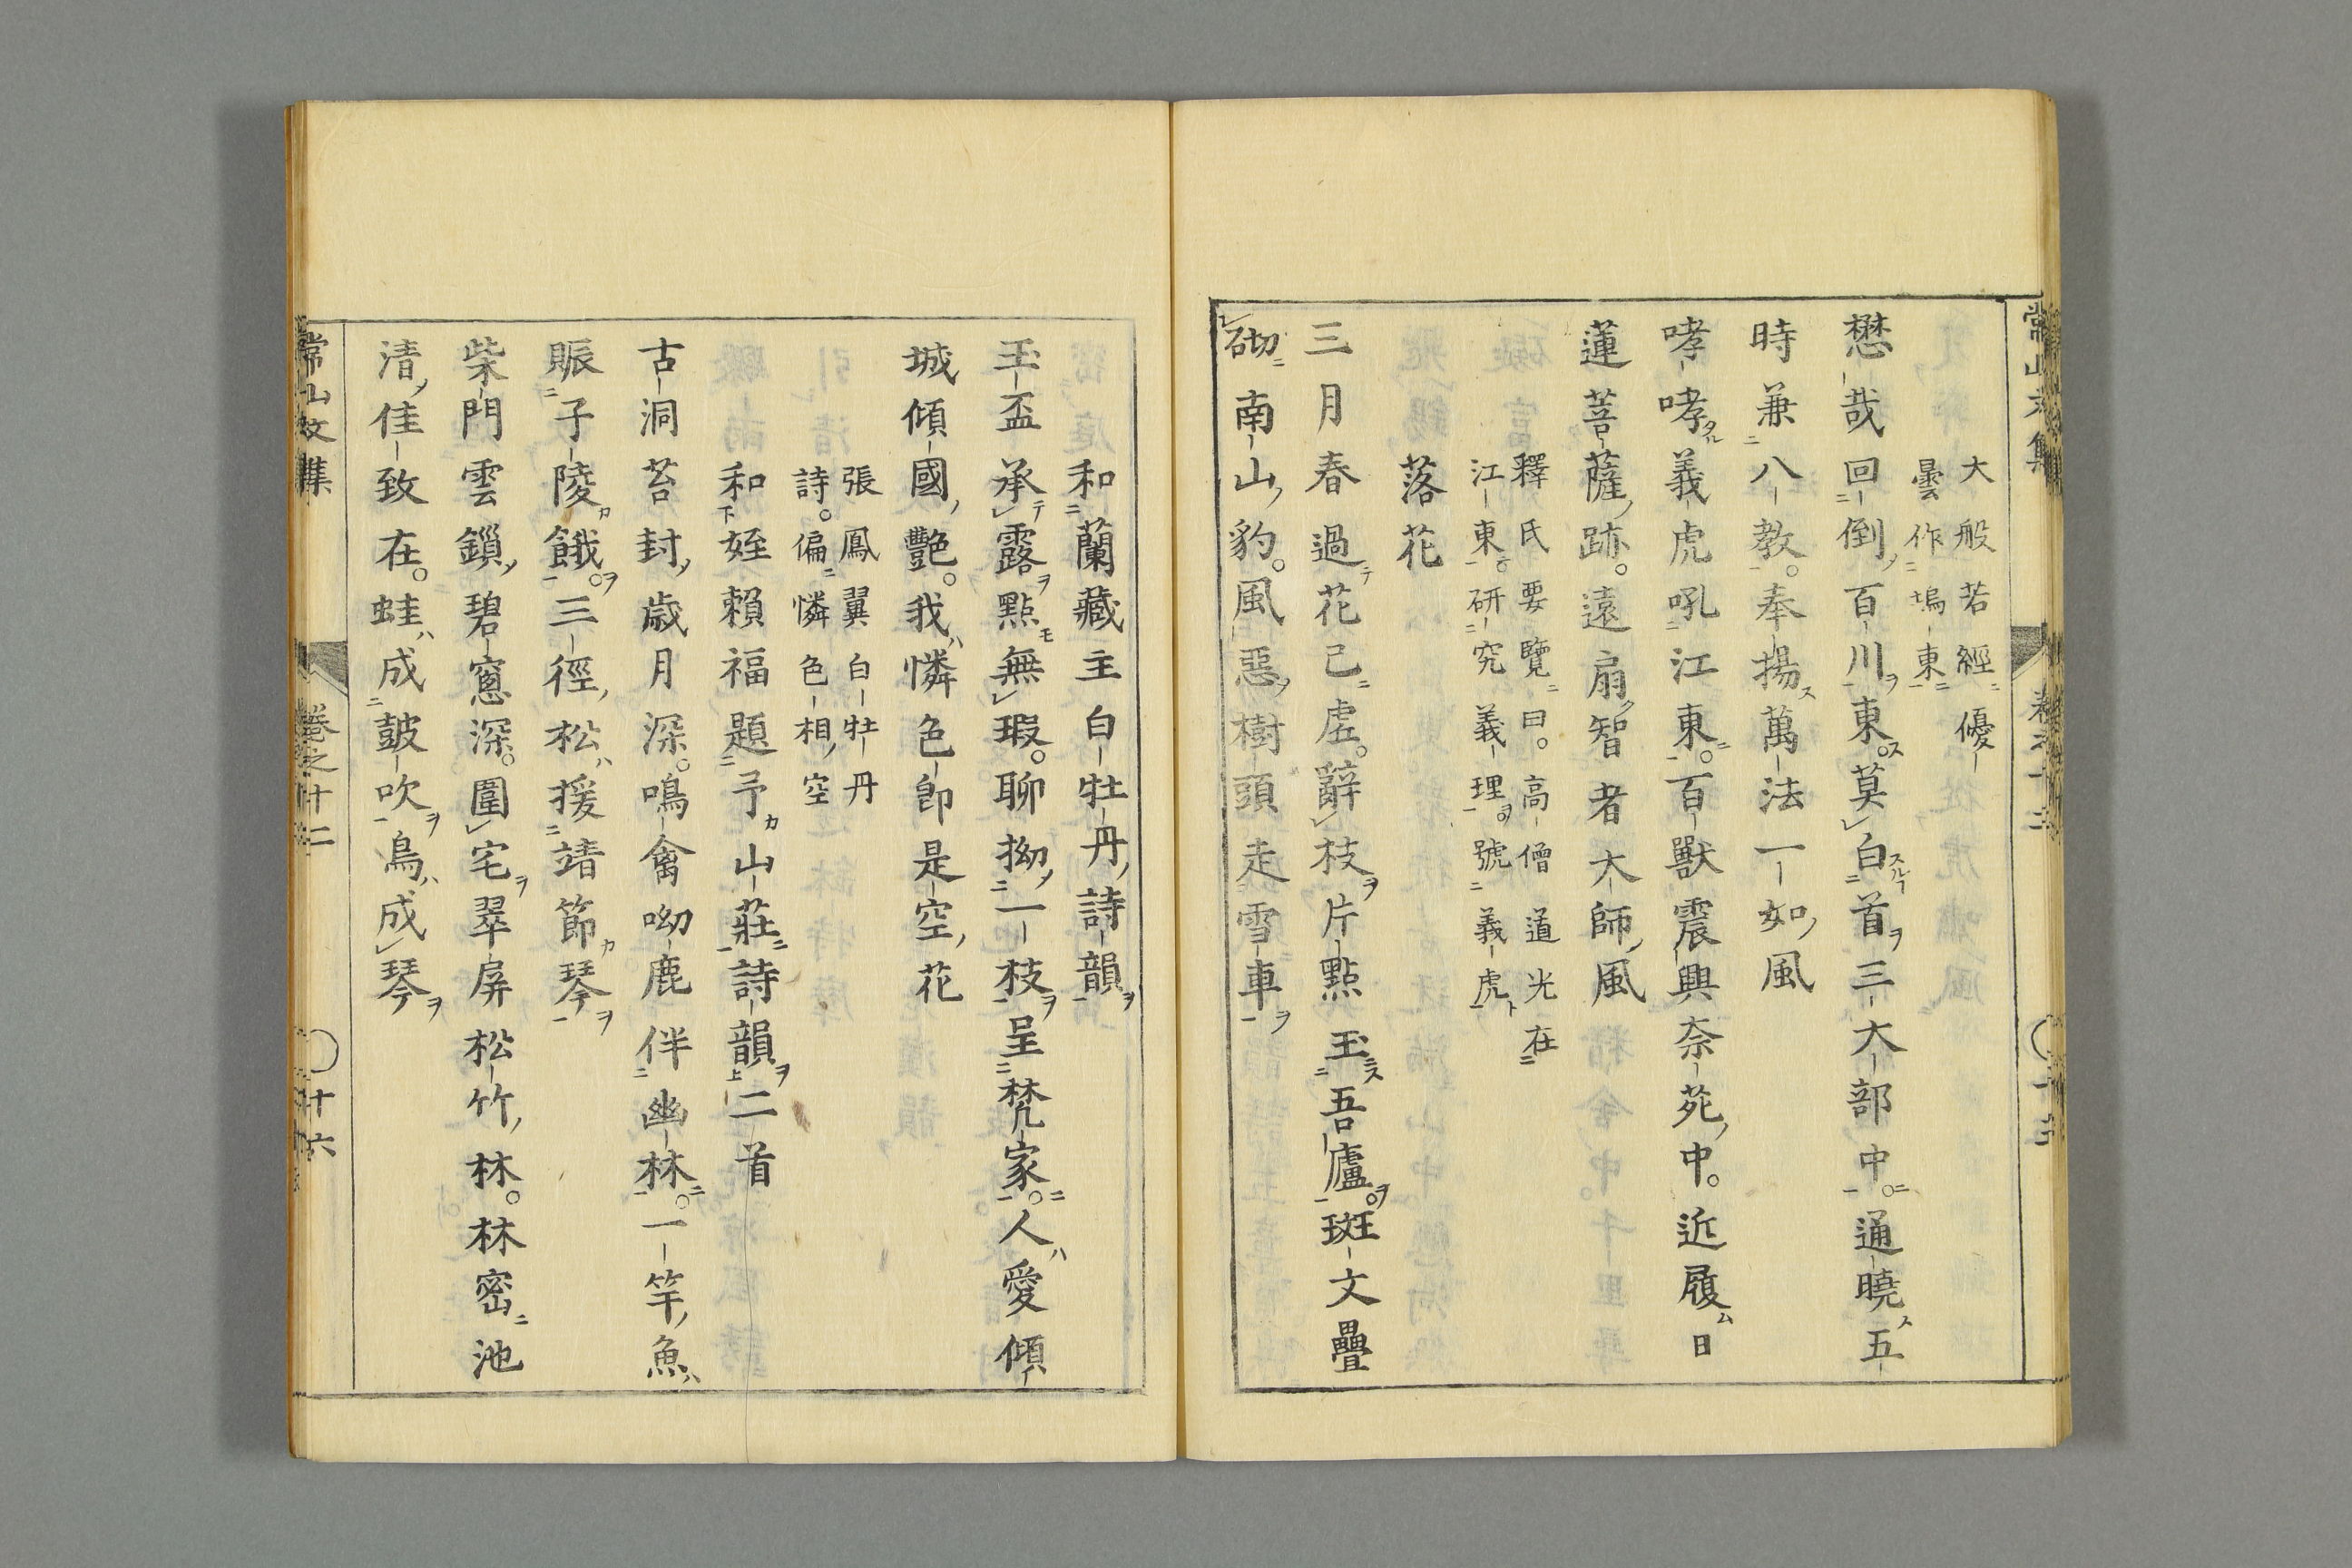 大般若經優
曇作塢東
懋哉回倒百川東。莫白首三大部中。通曉五
時兼八教。奉揚萬法一如風
哮哮義虎吼江東。百獸震興奈苑中。近履日
蓮菩薩跡。遠扇智者大師風
釋氏要覽曰。高僧道光在
江東。研究義理。號義虎
落花
三月春過花已虛。辭枝片點玉吾廬。斑文疊
砌南山豹。風惡樹頭走雪車
和蘭藏主白牡丹詩韻
玉盃承露點無瑕。聊拗一枝呈梵家。人愛傾
城傾國艷。我憐色卽是空花
張鳳翼白牡丹
詩。偏憐色相空
和姪賴福題予山莊詩韻二首
古洞苔封歲月深。鳴禽呦鹿伴幽林。一竿魚
賑子陵餓。三徑松援靖節琴
柴門雲鎖碧窻深。圍宅翠屏松竹林。林密池
清佳致在。蛙成皷吹鳥成琴
常山文集
卷之十二
十六